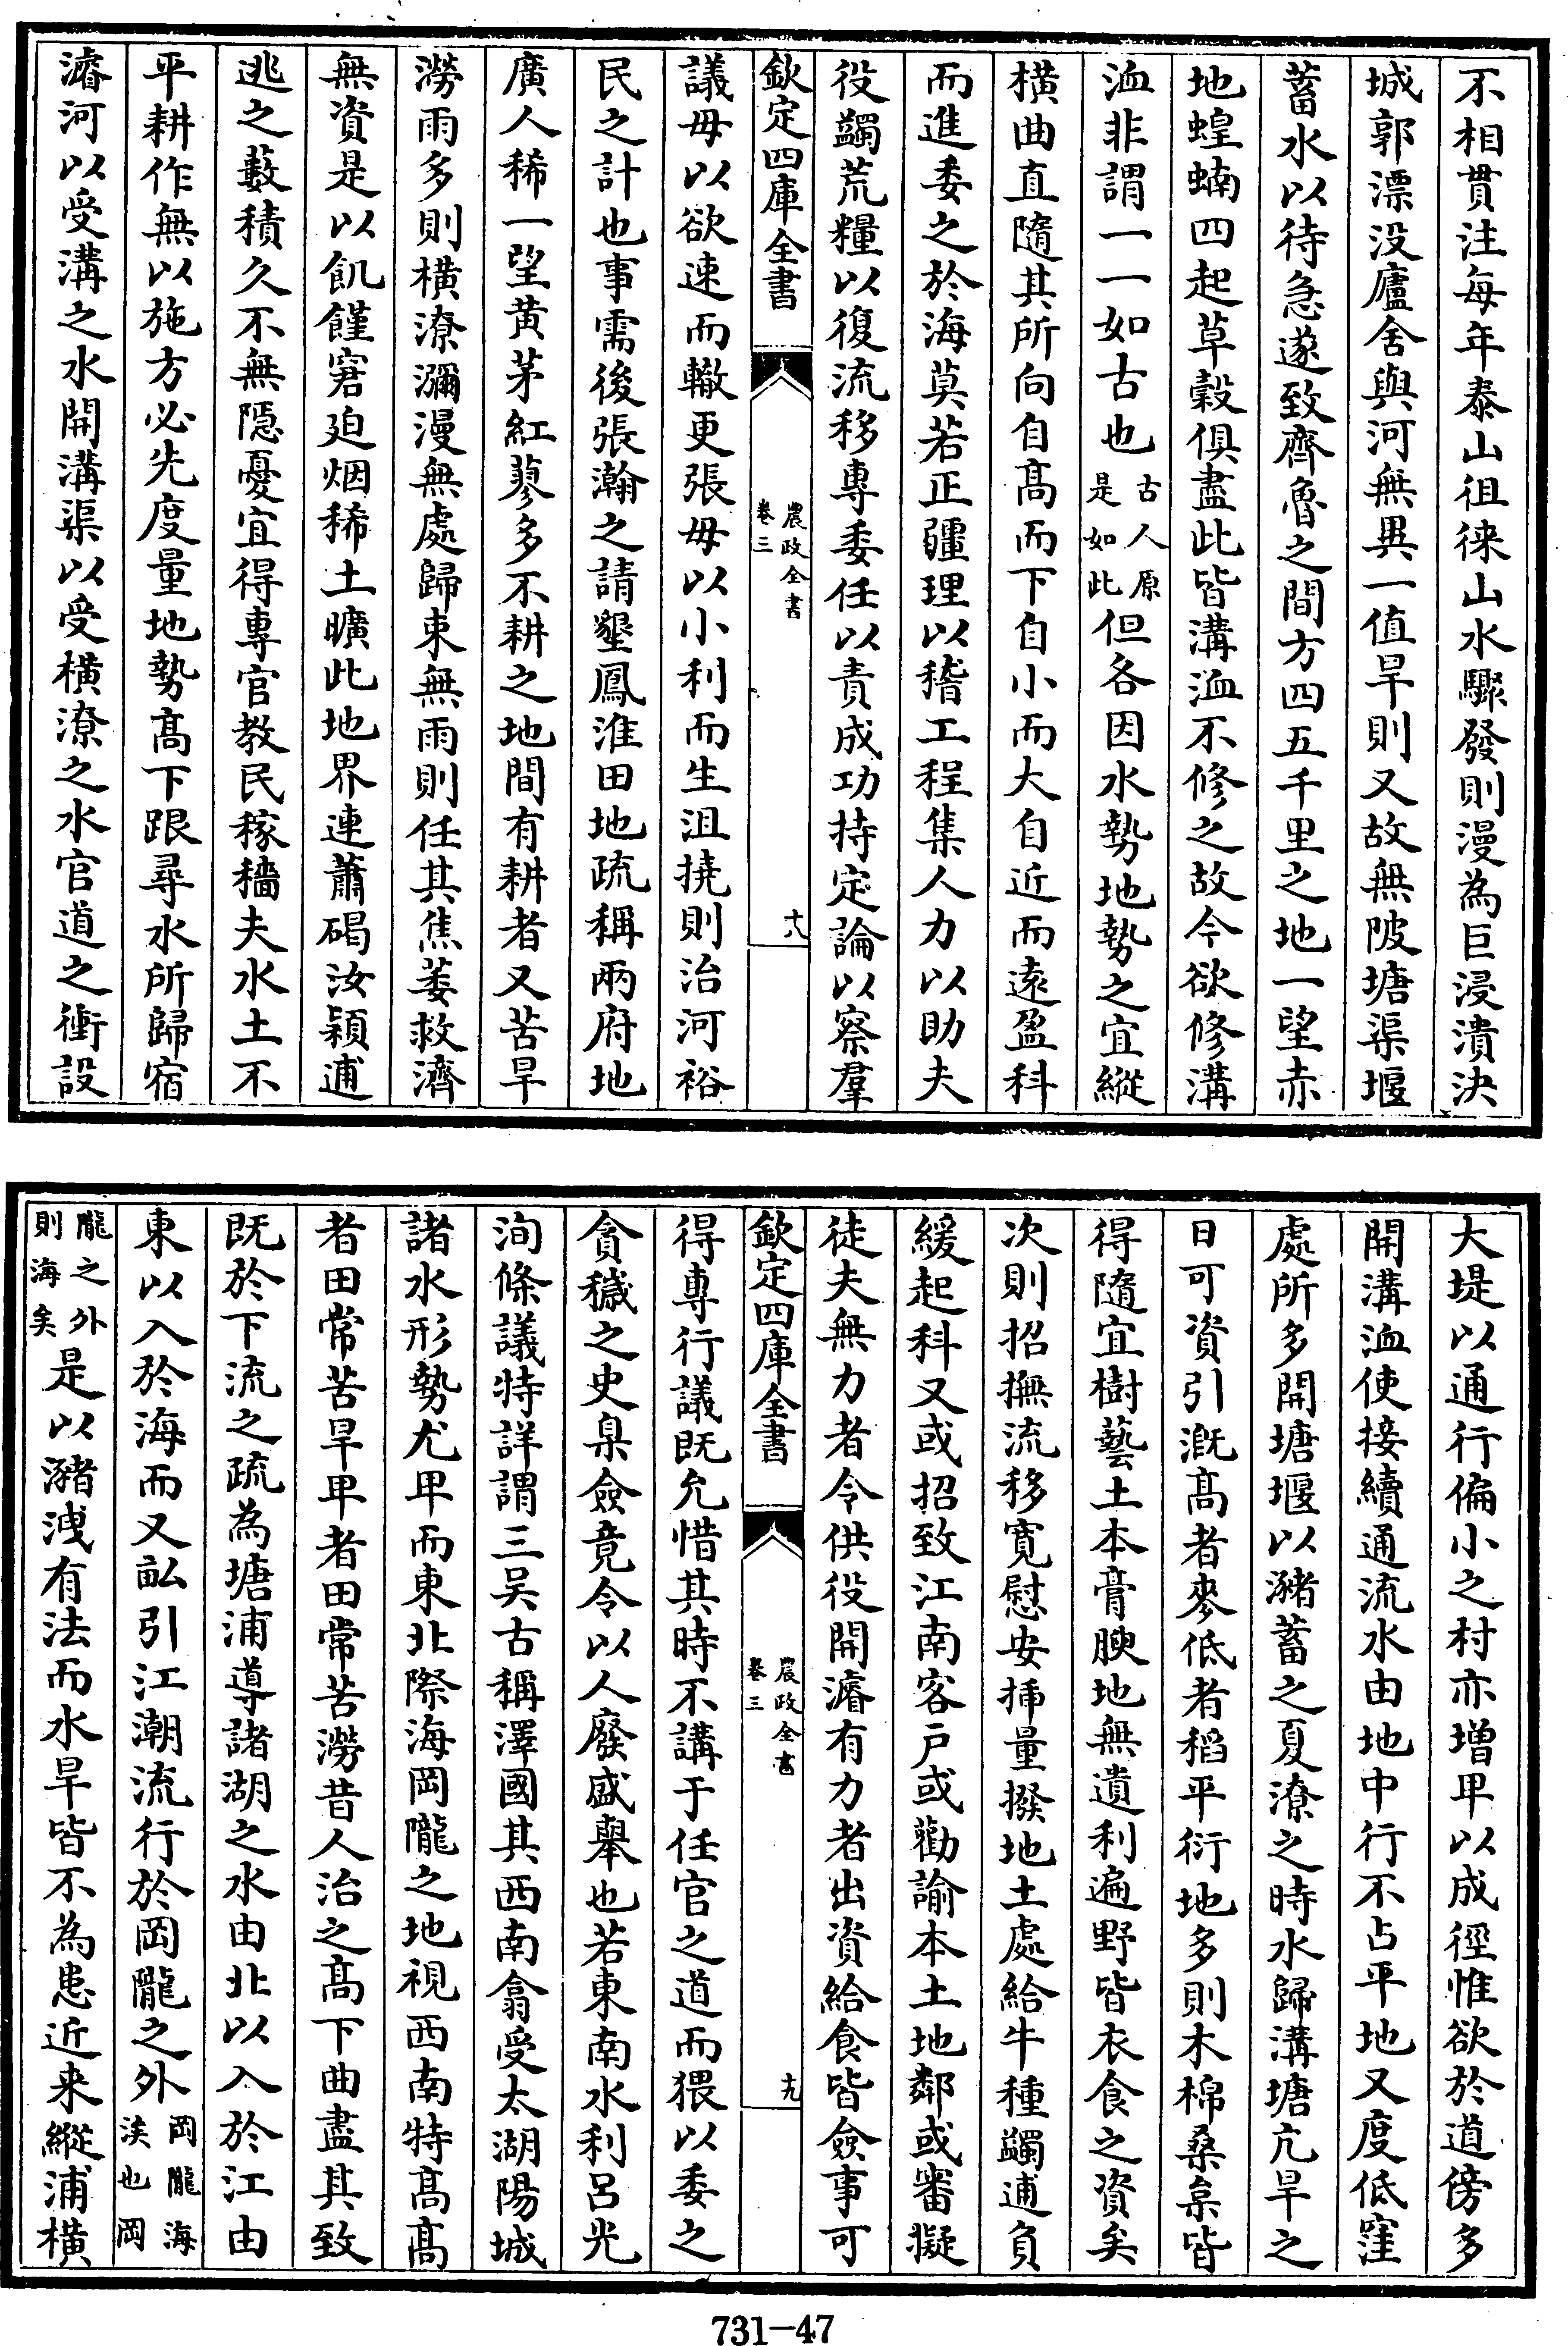 不相貫注每年泰山徂徠山水驟發則漫為巨浸潰決
城郭漂没廬舍與河無異一值旱則又故無陂塘渠堰
蓄水以待急遂致齊魯之間方四五千里之地一望赤
地蝗蝻四起草穀俱盡此皆溝洫不修之故今欲修溝
洫非謂一一如古也古人原是如此但各因水勢地勢之宜縱
横曲直隨其所向自髙而下自小而大自近而逺盈科
而進委之於海莫若正疆理以稽工程集人力以助夫
役蠲荒糧以復流移専委任以責成功持定論以察羣
欽定四庫全書
農政全書
卷三
十八
議毋以欲速而輙更張毋以小利而生沮撓則治河裕
民之計也事需後張瀚之請墾鳳淮田地疏稱兩府地
廣人稀一望黄茅紅蓼多不耕之地間有耕者又苦旱
澇雨多則横潦瀰漫無處歸束無雨則任其焦萎救濟
無資是以飢饉窘廹烟稀土曠此地界連蕭碭汝潁逋
逃之藪積久不無隠憂宜得専官教民稼穡夫水土不
平耕作無以施方必先度量地勢髙下跟尋水所歸宿
濬河以受溝之水開溝渠以受横潦之水官道之衝設
大堤以通行偏小之村亦增卑以成徑惟欲於道傍多
開溝洫使接續通流水由地中行不占平地又度低窪
處所多開塘堰以瀦蓄之夏潦之時水歸溝塘亢旱之
日可資引漑髙者麥低者稻平衍地多則木棉桑枲皆
得隨宜樹藝土本膏腴地無遺利遍野皆衣食之資矣
次則招撫流移寛慰安揷量撥地土處給牛種蠲逋負
緩起科又或招致江南客戸或勸諭本土地鄰或審擬
徒夫無力者令供役開濬有力者出資給食皆僉事可
欽定四庫全書
農政全書
卷三
十九
得専行議既允惜其時不講于任官之道而猥以委之
貪穢之史臬僉竟令以人廢盛舉也若東南水利呂光
洵條議特詳謂三吴古稱澤國其西南翕受太湖陽城
諸水形勢尤卑而東北際海岡隴之地視西南特髙髙
者田常苦旱卑者田常苦澇昔人治之髙下曲盡其致
既於下流之疏為塘浦導諸湖之水由北以入於江由
東以入於海而又畆引江潮流行於岡隴之外岡隴海涘也岡
隴之外則海矣是以瀦洩有法而水旱皆不為患近来縱浦横
731—47